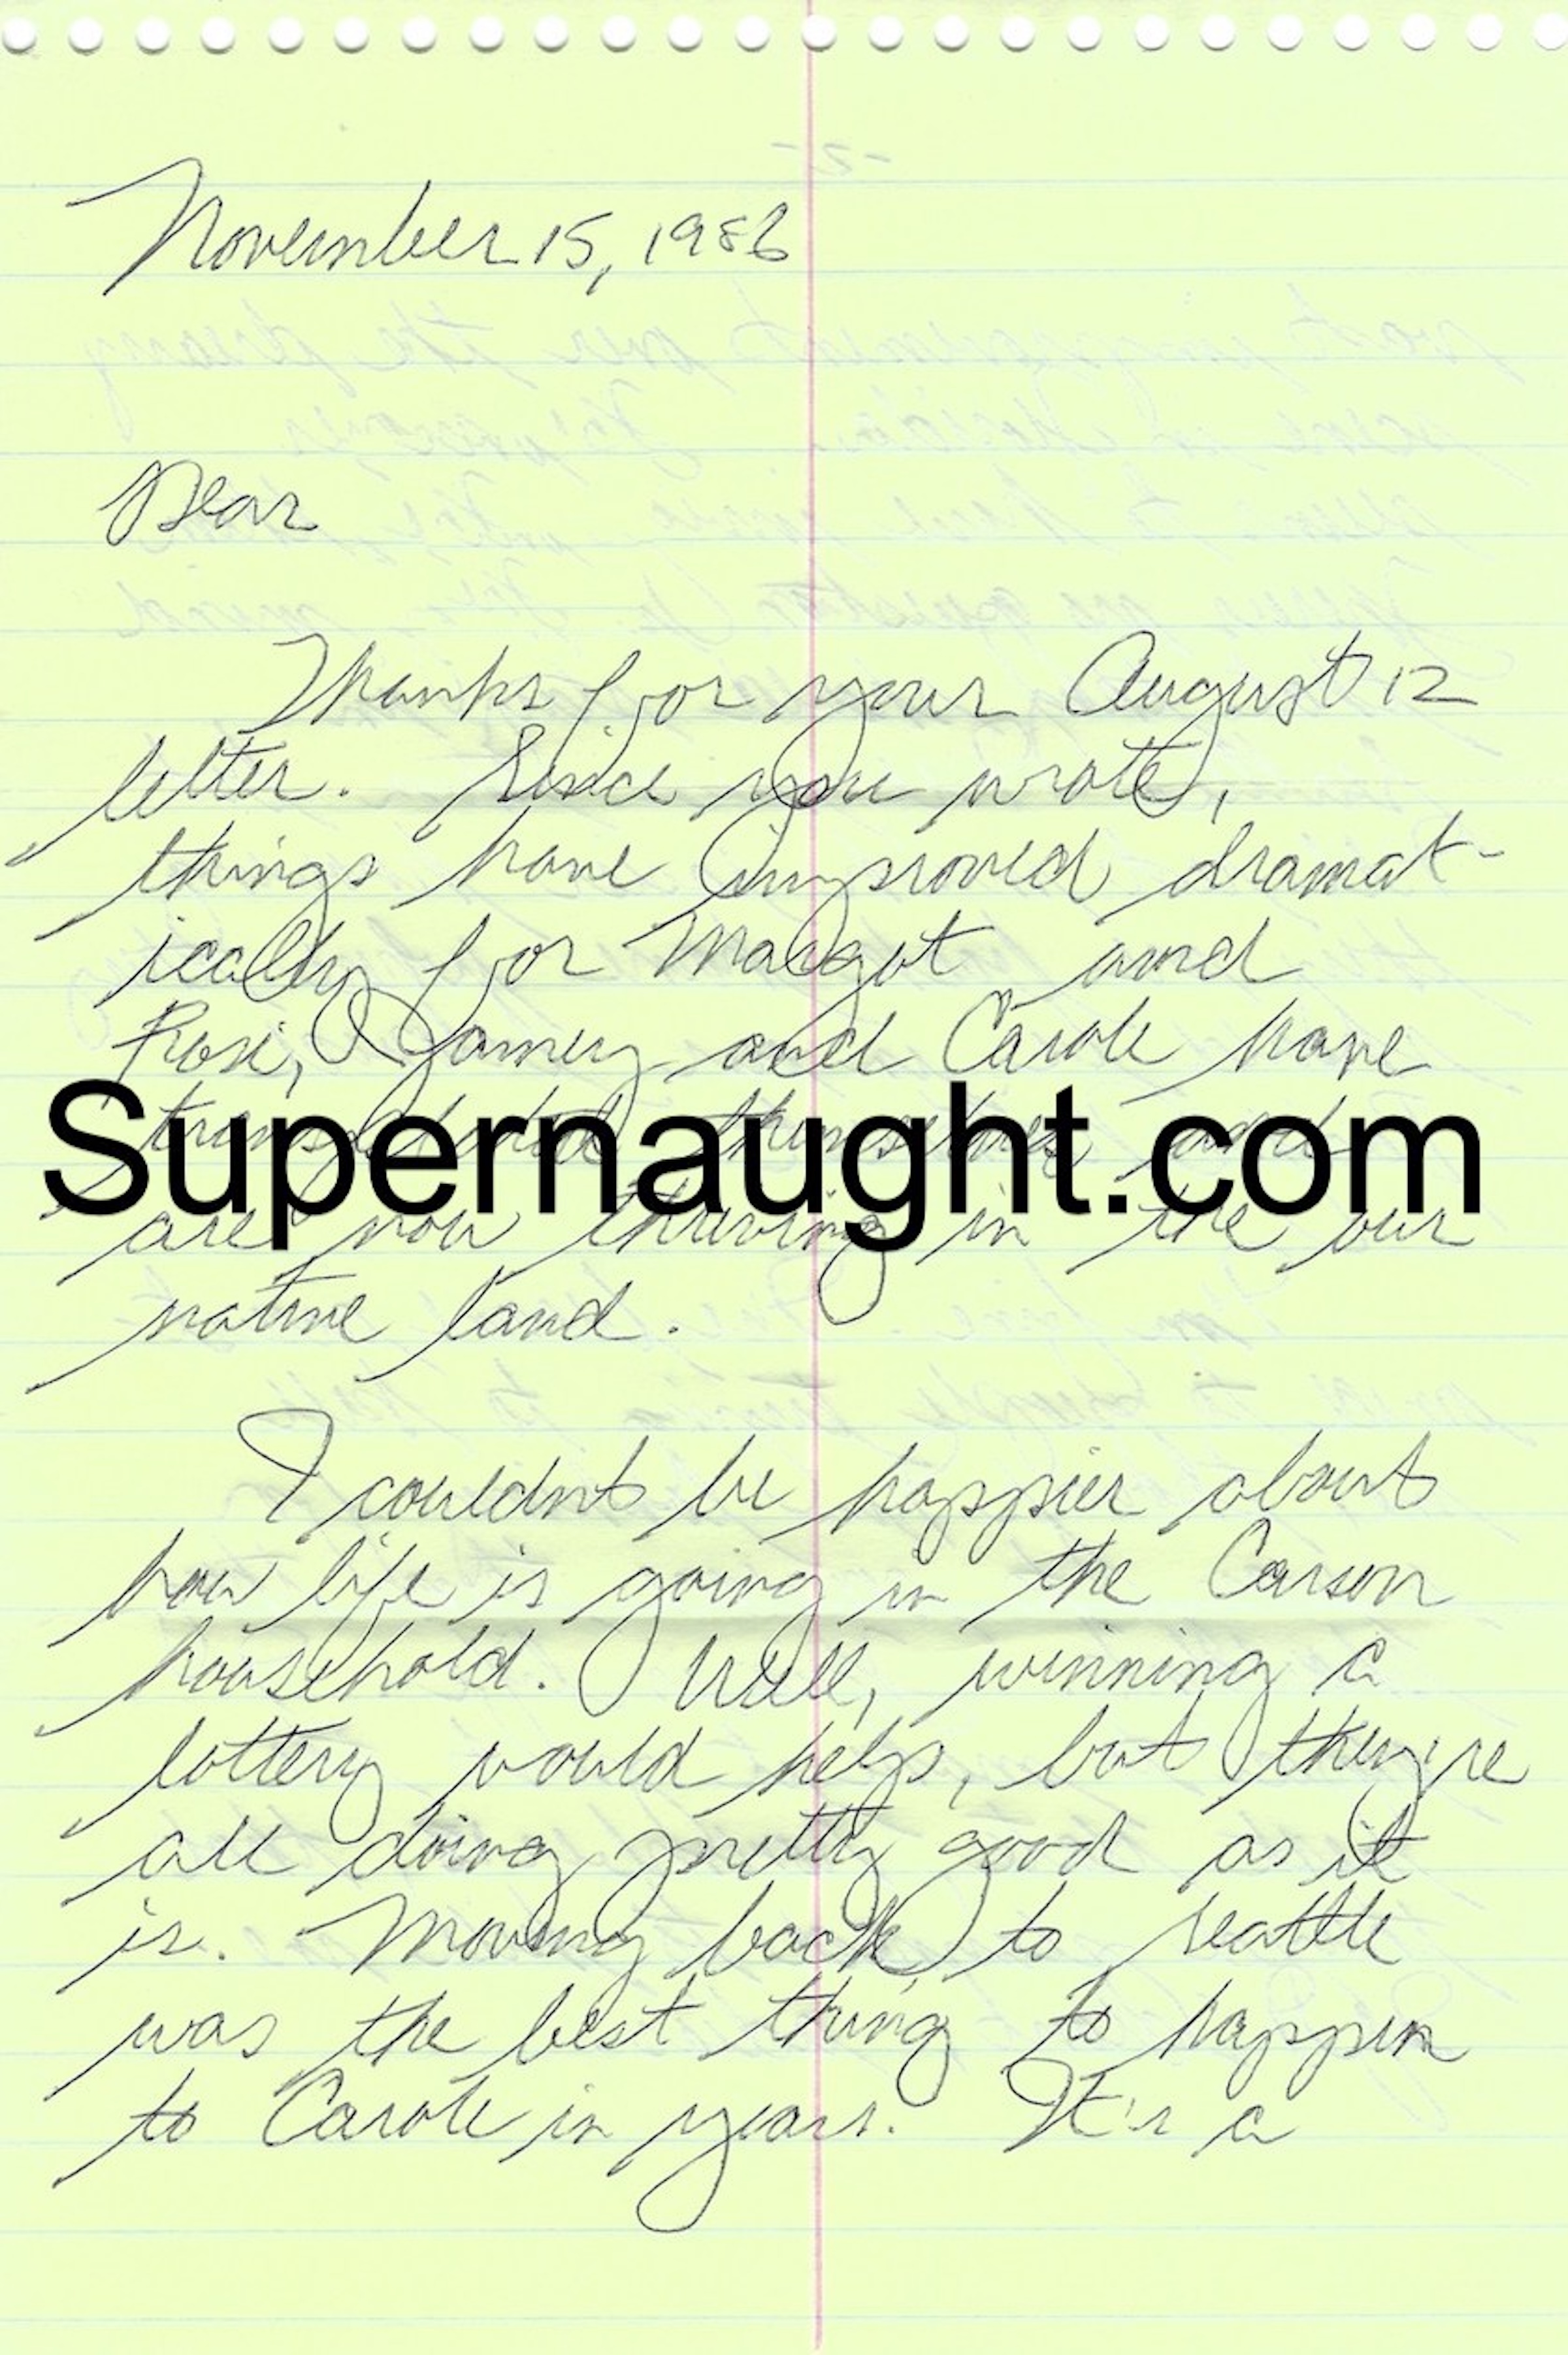 November 15, 1986
Dear
Thanks for your August 12
letter. Since you wrote,
things have improved dramat-
ically for Margot and
Rosi, Jamey and Carole have
themselves and
Supernaught.com
are now thriving in the our
native land.
I couldn't be happier about
how life is going in the Carson
household. Well, winning a
lottery would help, but they're
all doing pretty good as it
is. Moving back to Seattle
was the best thing to happen
to Carole in years. It's a